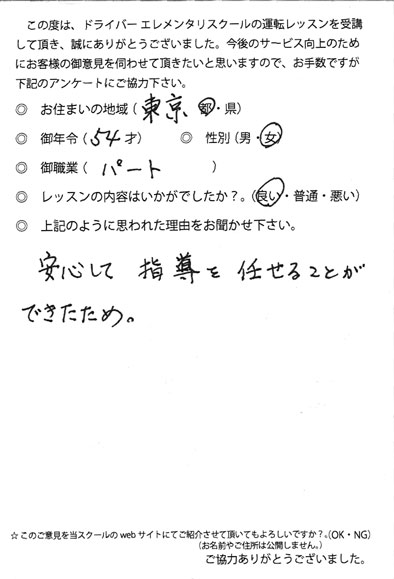 この度は、ドライバー エレメンタリスクールの運転レッスンを受講
して頂き、誠にありがとうございました。今後のサービス向上のため
にお客様の御意見を伺わせて頂きたいと思いますので、お手数ですが
下記のアンケートにご協力下さい。
◎ お住まいの地域（東京 都・県）
◎ 御年令（54才） ◎ 性別（男・女）
◎ 御職業（パート）
◎ レッスンの内容はいかがでしたか？。（良い・普通・悪い）
◎ 上記のように思われた理由をお聞かせ下さい。
安心して 指導を 任せることが
できたため。
☆このご意見を当スクールの web サイトにてご紹介させて頂いてもよろしいですか？。（OK・NG）
（お名前やご住所は公開しません。）
ご協力ありがとうございました。